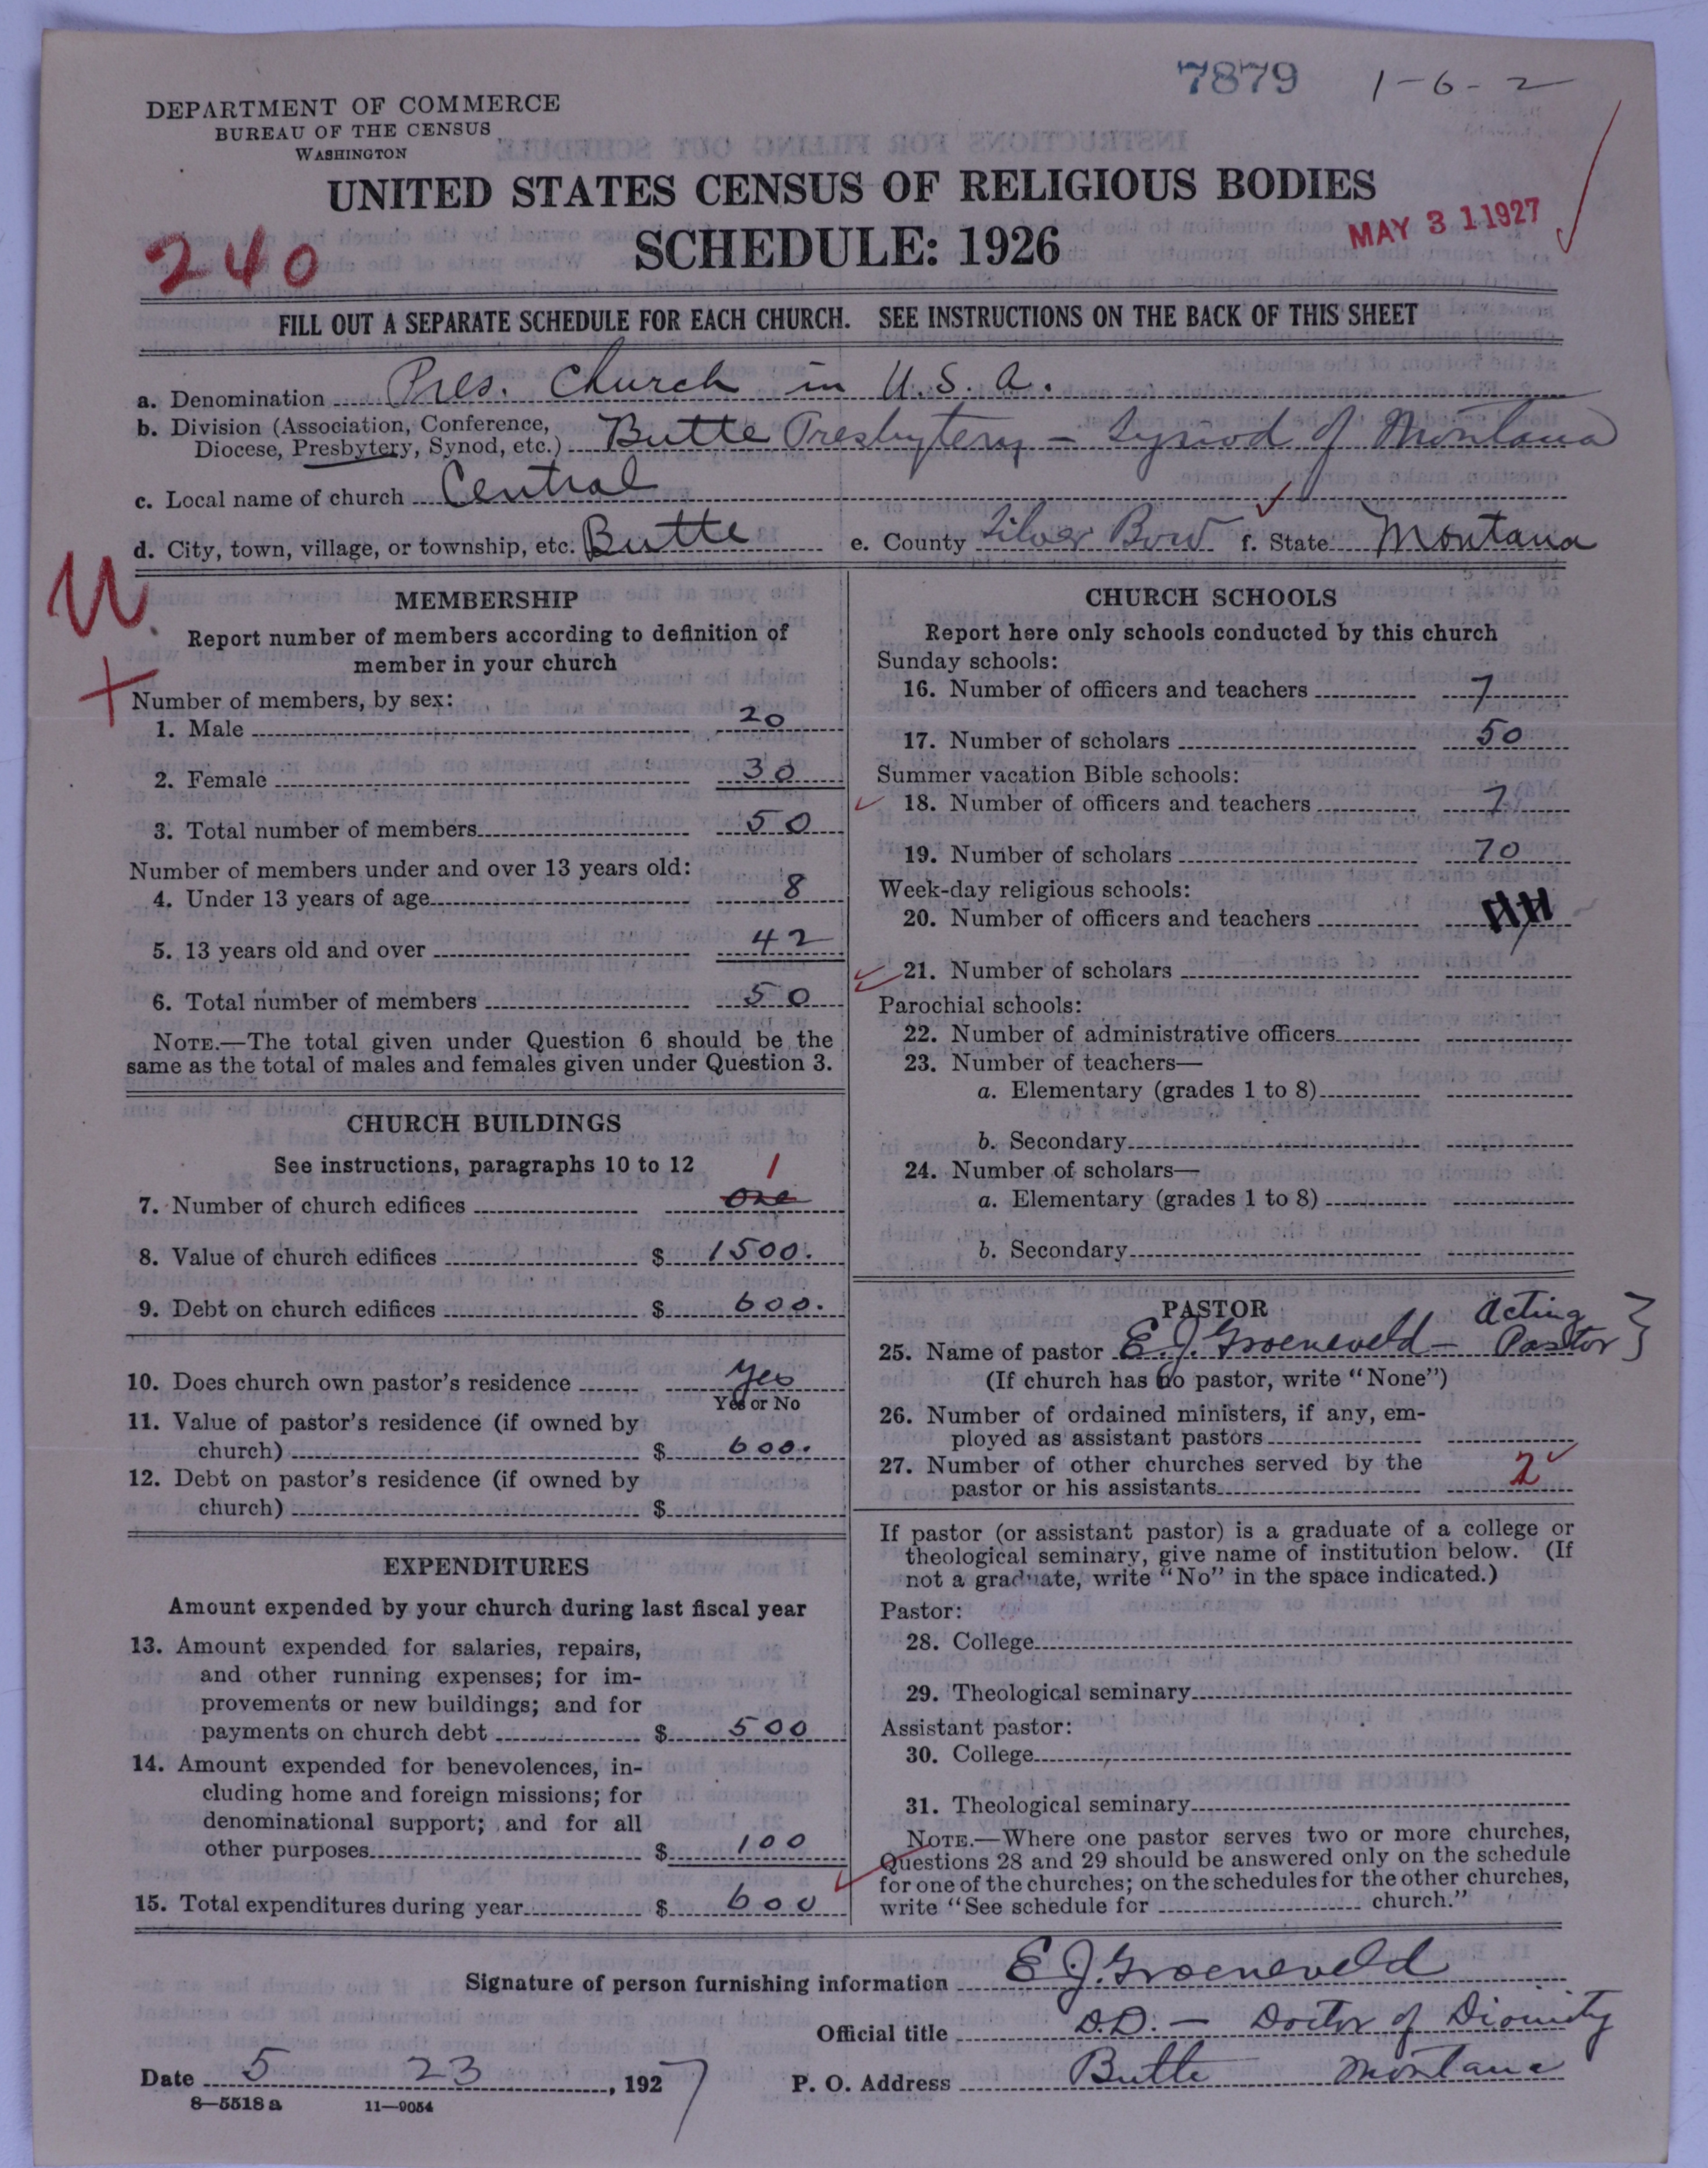 7879 1-6-2
DEPARTMENT OF COMMERCE
BUREAU OF THE CENSUS
WASHINGTON
UNITED STATES CENSUS OF RELIGIOUS BODIES
SCHEDULE: 1926
MAY 31 1927
240
FILL OUT A SEPARATE SCHEDULE FOR EACH CHURCH. SEE INSTRUCTIONS ON THE BACK OF THIS SHEET
a. Denomination Pres. Church in U.S.A.
b. Division (Association, Conference,
Diocese, Presbytery, Synod, etc.) Butte Presbytery - Synod of Montana
c. Local name of church Central
d. City, town, village, or township, etc. Butte e. County Silver Bow f. State Montana
MEMBERSHIP
Report number of members according to definition of
member in your church
Number of members, by sex:
1. Male 20
2. Female 30
3. Total number of members 50
Number of members under and over 13 years old:
4. Under 13 years of age 8
5. 13 years old and over 42
6. Total number of members 50
NOTE.—The total given under Question 6 should be the
same as the total of males and females given under Question 3.
CHURCH BUILDINGS
See instructions, paragraphs 10 to 12
1
7. Number of church edifices One
8. Value of church edifices $ 1500.
9. Debt on church edifices $ 600.
10. Does church own pastor's residence Yes
Yes or No
11. Value of pastor's residence (if owned by
church) $ 600.
12. Debt on pastor's residence (if owned by
church) $
EXPENDITURES
Amount expended by your church during last fiscal year
13. Amount expended for salaries, repairs,
and other running expenses; for im-
provements or new buildings; and for
payments on church debt $ 500
14. Amount expended for benevolences, in-
cluding home and foreign missions; for
denominational support; and for all
other purposes $ 100
15. Total expenditures during year $ 600
CHURCH SCHOOLS
Report here only schools conducted by this church
Sunday schools:
16. Number of officers and teachers 7
17. Number of scholars 50
Summer vacation Bible schools:
18. Number of officers and teachers 7
19. Number of scholars 70
Week-day religious schools:
20. Number of officers and teachers
21. Number of scholars
Parochial schools:
22. Number of administrative officers
23. Number of teachers—
a. Elementary (grades 1 to 8)
b. Secondary
24. Number of scholars—
a. Elementary (grades 1 to 8)
b. Secondary
PASTOR
25. Name of pastor E. J. Groeneveld - Acting Pastor
(If church has no pastor, write "None")
26. Number of ordained ministers, if any, em-
ployed as assistant pastors
27. Number of other churches served by the
pastor or his assistants 2
If pastor (or assistant pastor) is a graduate of a college or
theological seminary, give name of institution below. (If
not a graduate, write "No" in the space indicated.)
Pastor:
28. College
29. Theological seminary
Assistant pastor:
30. College
31. Theological seminary
NOTE.—Where one pastor serves two or more churches,
Questions 28 and 29 should be answered only on the schedule
for one of the churches; on the schedules for the other churches,
write "See schedule for church."
Signature of person furnishing information E. J. Groeneveld
Official title D.D. - Doctor of Divinity
Date 5 23, 1927 P. O. Address Butte Montana
8—5518 a 11—9054